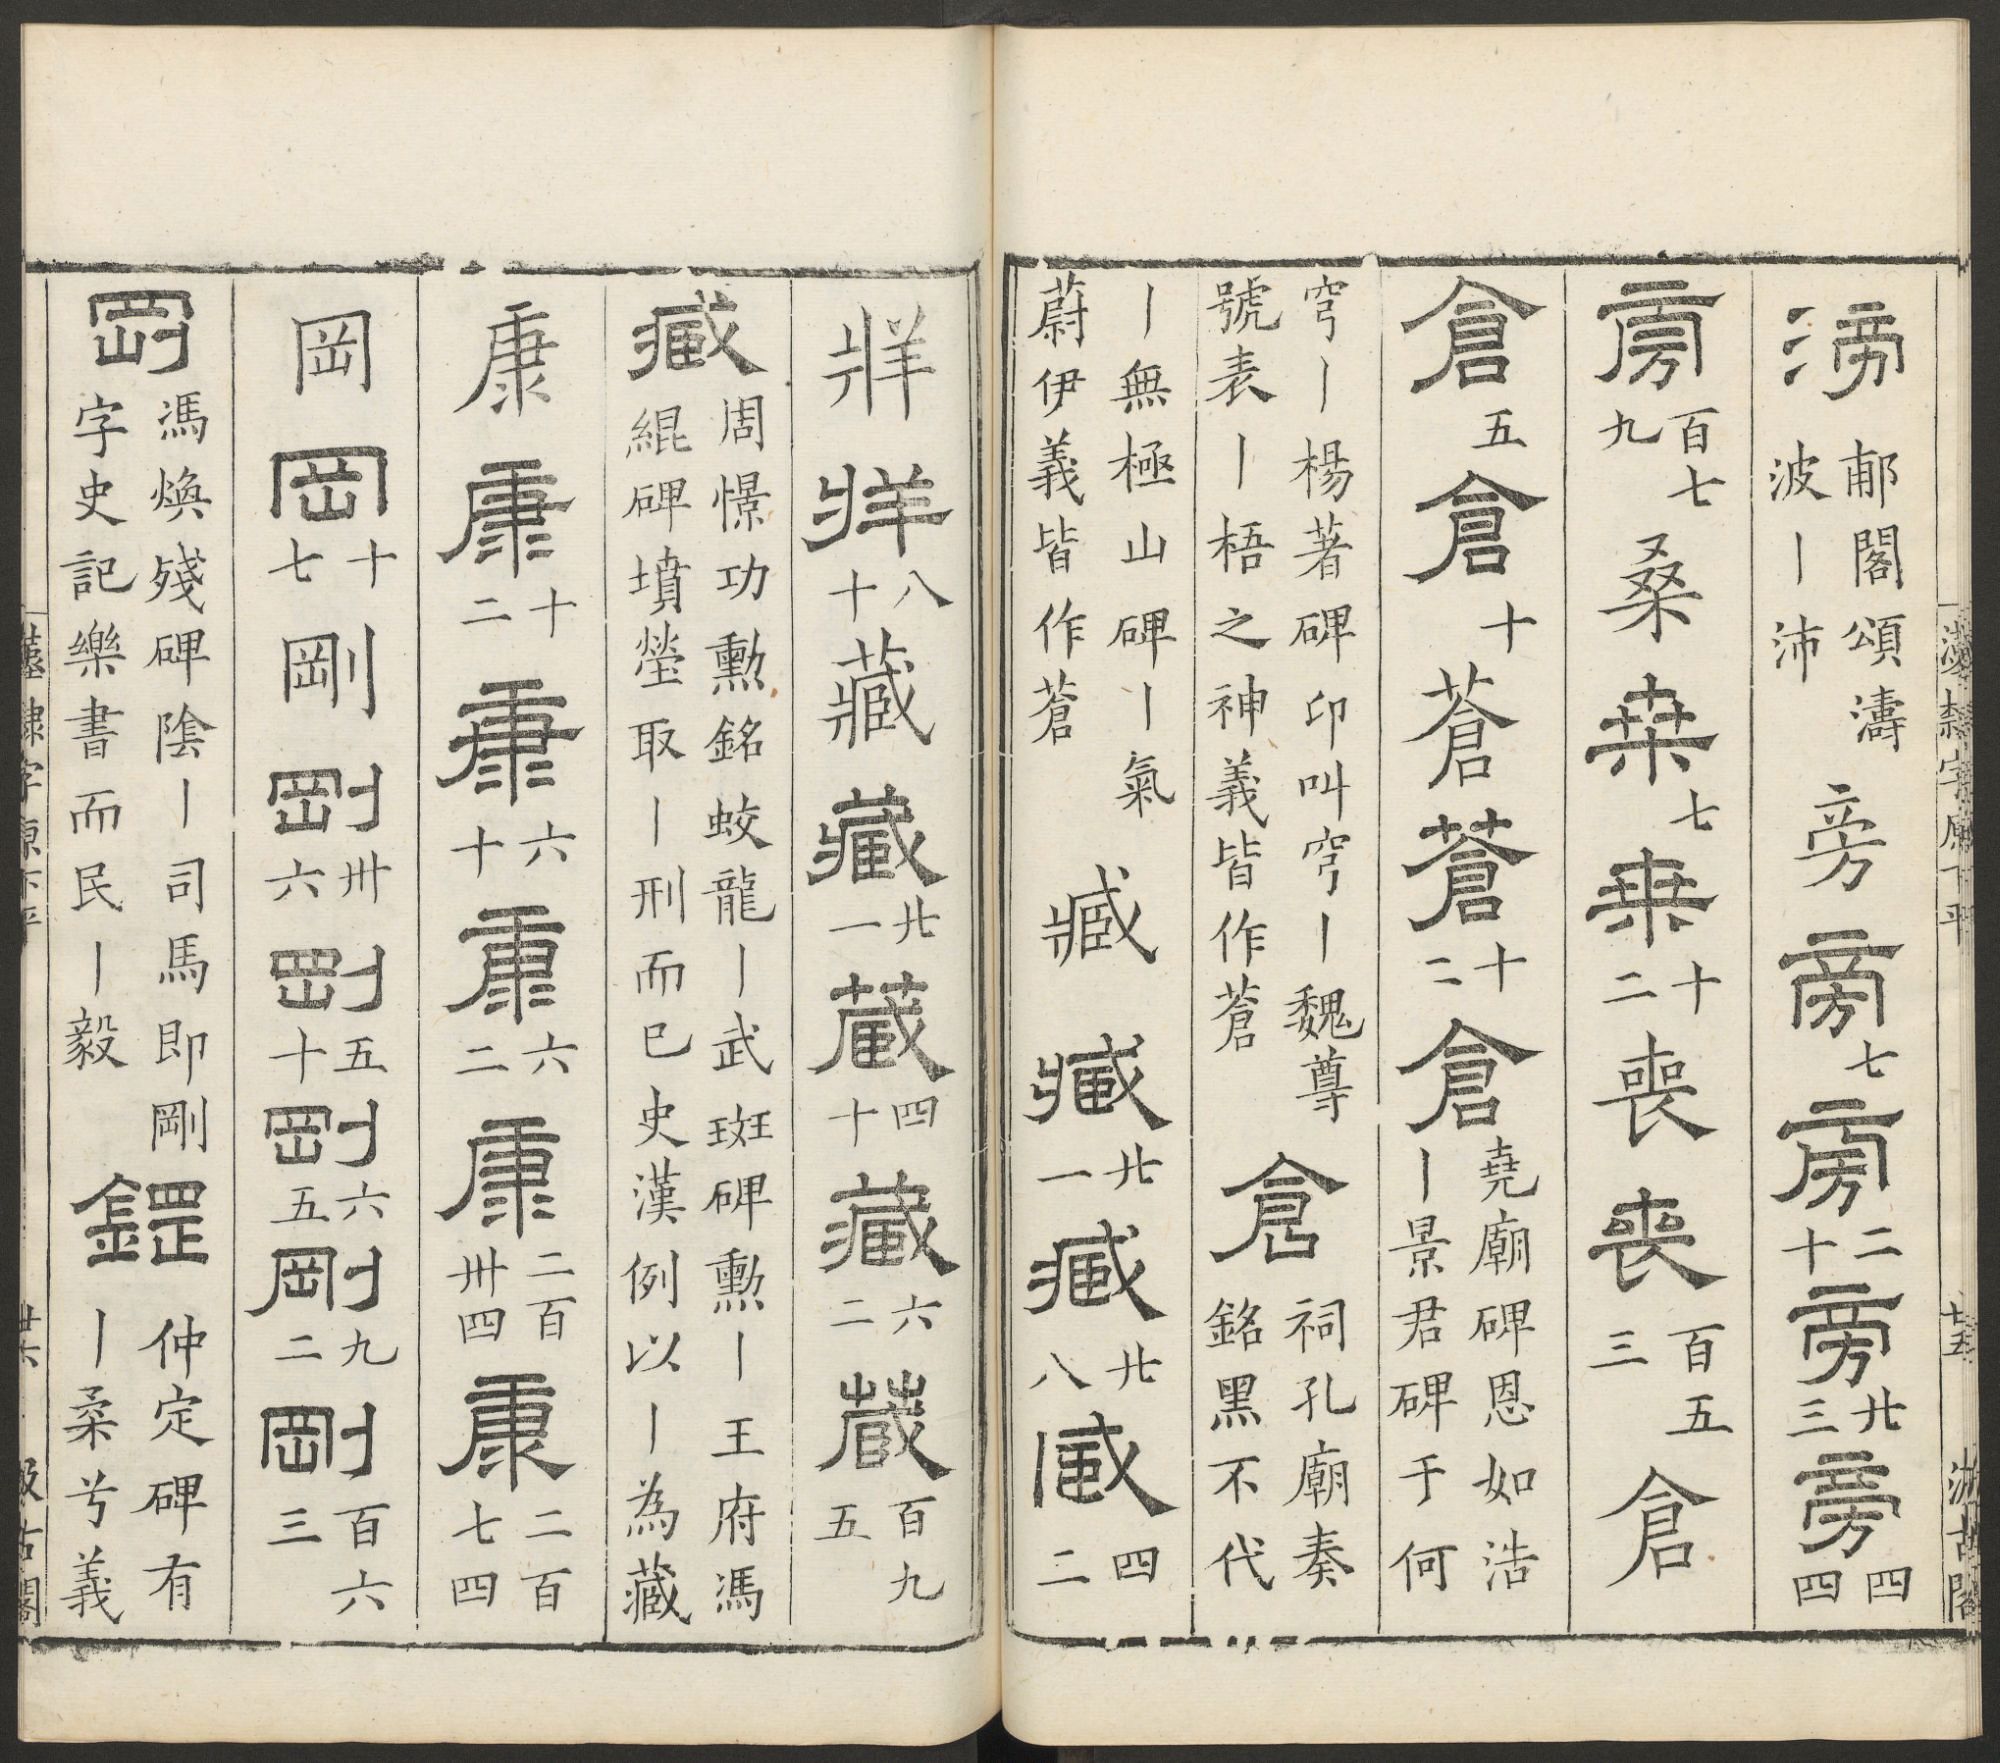 滂郙閣頌濤波丨沛旁旁七旁十二旁廿三旁四四
旁百七九桑桑七桑十二喪喪百五三倉
倉五倉十蒼蒼十二倉堯廟碑恩如浩丨景君碑于何
穹丨楊著碑卬叫穹丨魏尊號表丨梧之神義皆作蒼倉祠孔廟奏銘黑不代
丨無極山碑丨丨氣蔚伊義皆作蒼臧臧廿一臧廿八臧四二
牂牂八十藏藏廿一藏四十藏六二藏百九五
臧周憬功勲銘蛟龍丨武斑碑勲丨王府馮緄碑墳塋取丨刑而已史漢例以丨為藏
康康十二康六十康六二康二百卅四康二百七四
岡岡十七剛剛卅六剛五十剛六五剛九二剛百六三
剛馮煥殘碑陰丨司馬即剛字史記樂書而民丨毅鋼仲定碑有丨柔兮義
漢隸字原下平
汲古閣
漢隸字原下平
卅六
汲古閣